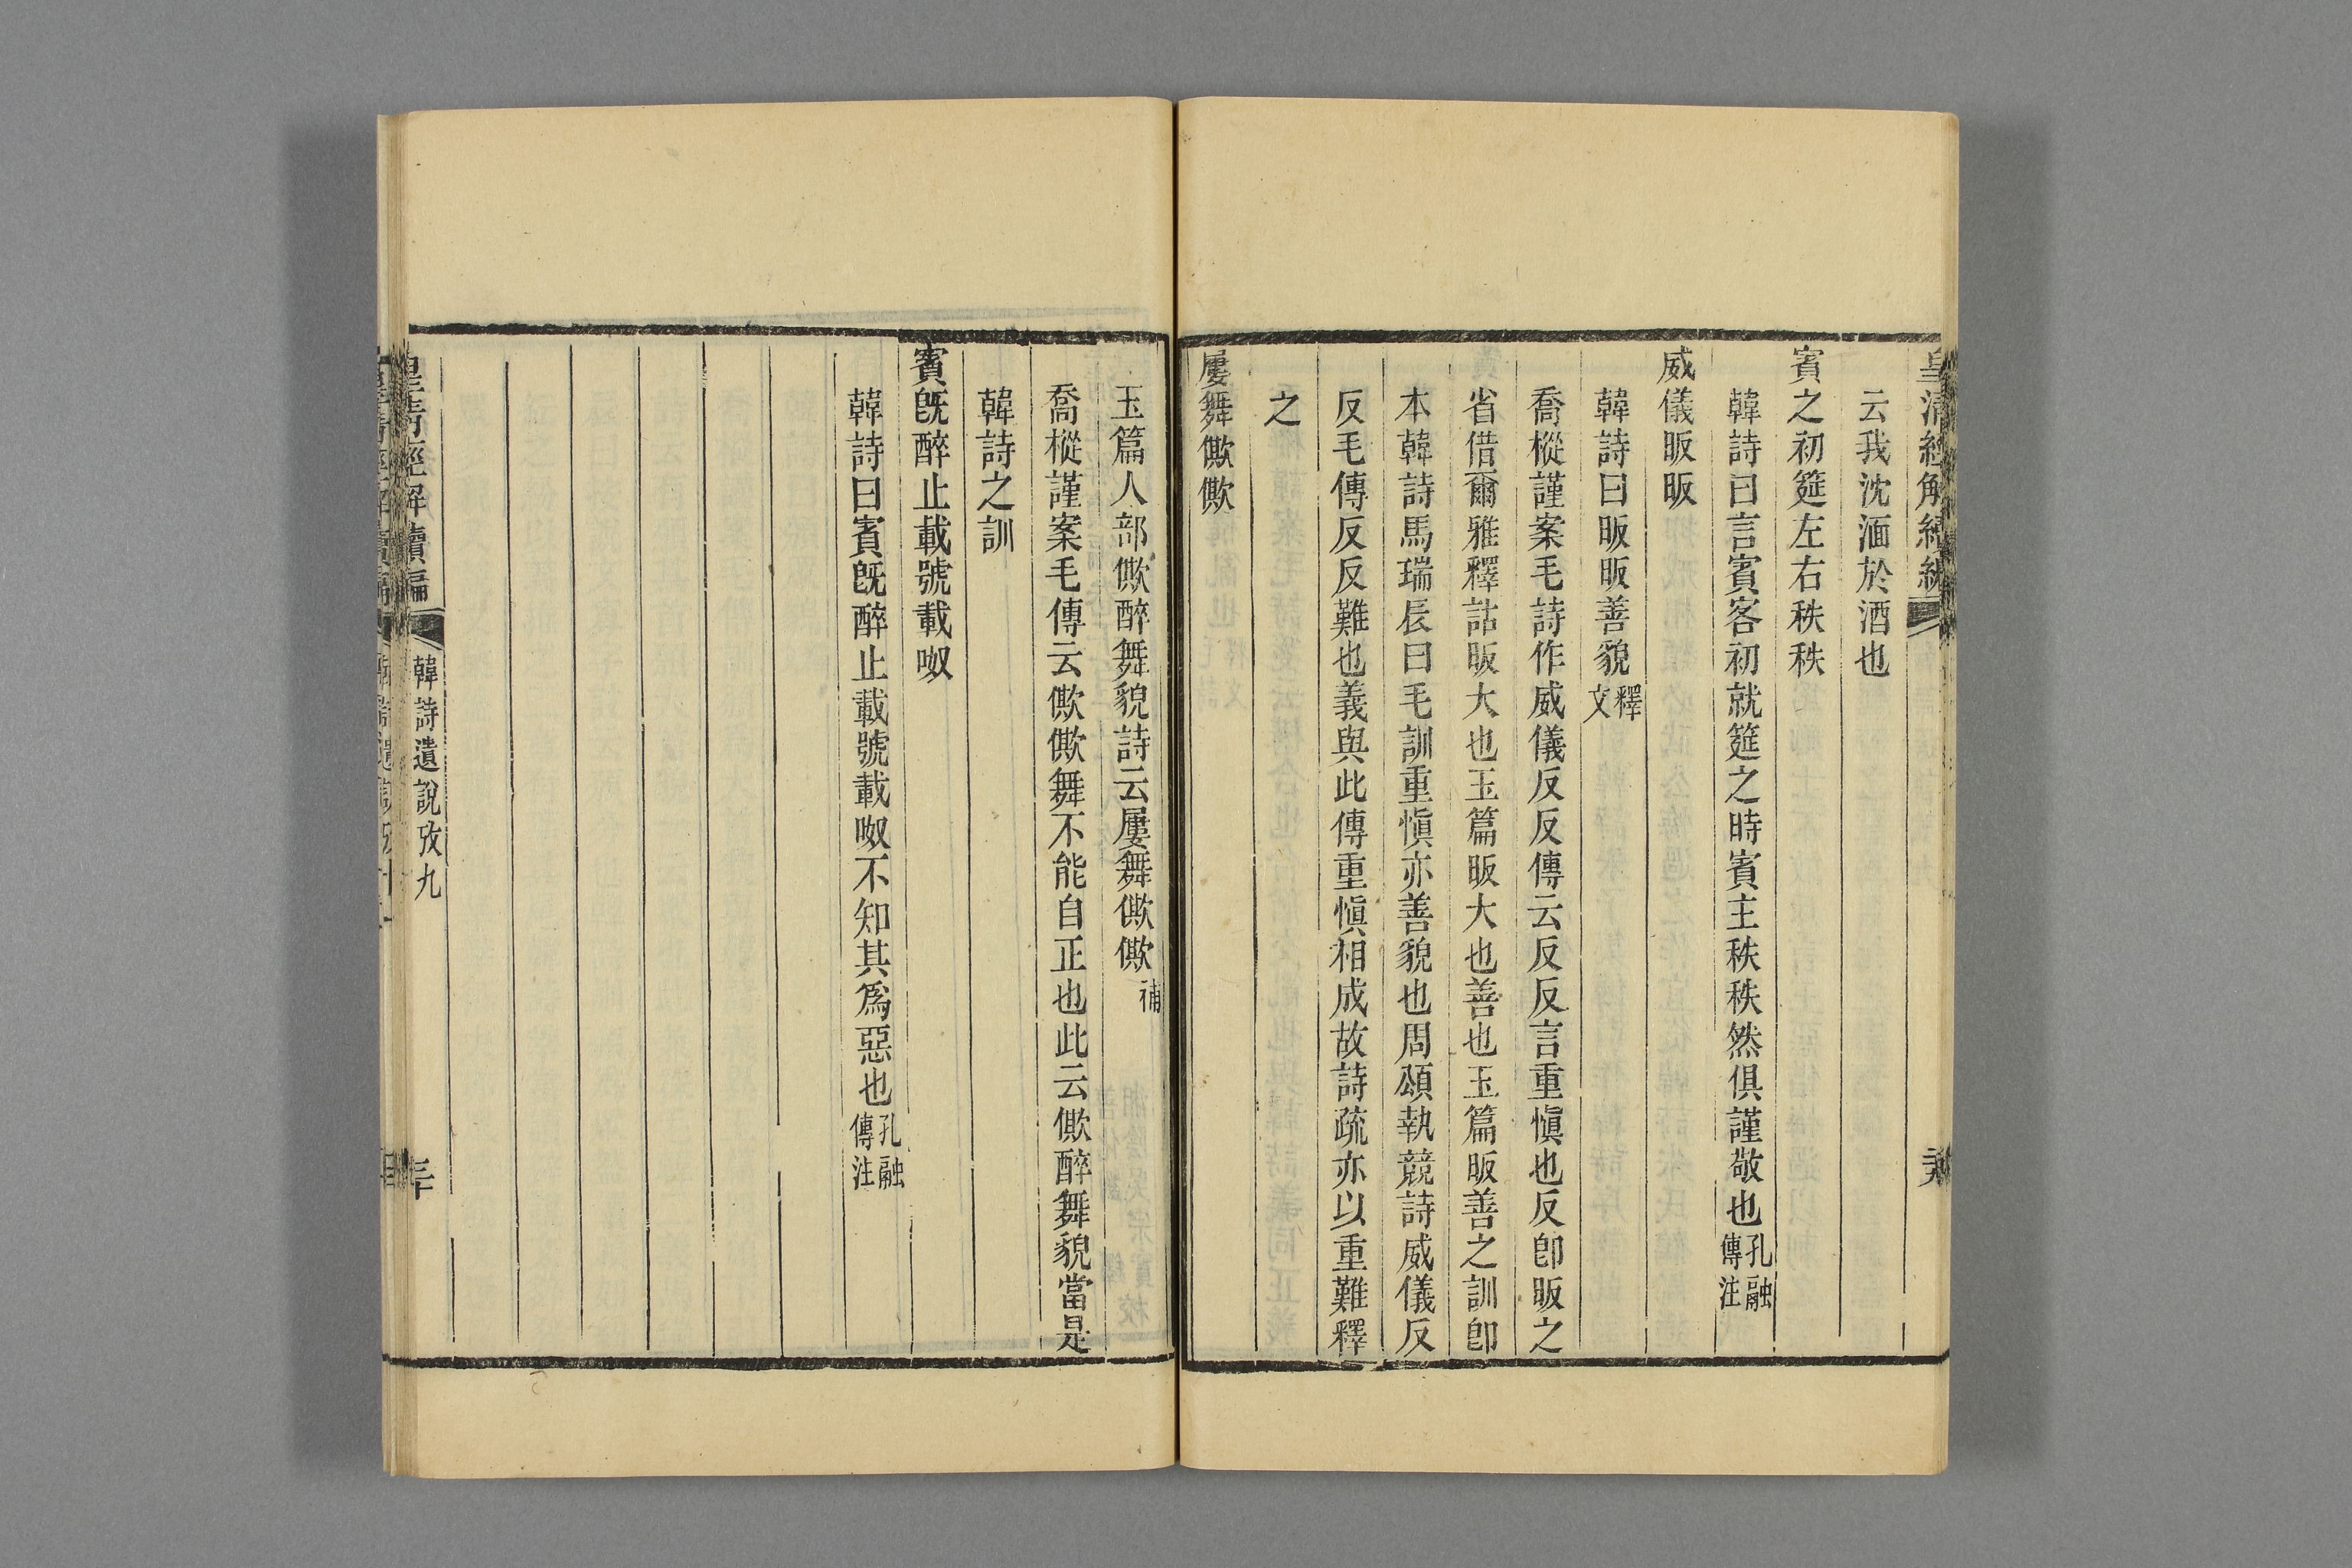 皇清經解續編
云我沈湎於酒也
賓之初筵左右秩秩
韓詩曰言賓客初就筵之時賓主秩秩然俱謹敬也孔融傳注
威儀昄昄
韓詩曰昄昄善貌釋文
喬樅謹案毛詩作威儀反反傳云反反言重愼也反卽昄之
省借爾雅釋詁昄大也玉篇昄大也善也玉篇昄善之訓卽
本韓詩馬瑞辰曰毛訓重愼亦善貌也周頌執競詩威儀反
反毛傳反反難也義與此傳重愼相成故詩疏亦以重難釋
之
屢舞僛僛
玉篇人部僛醉舞貌詩云屢舞僛僛補
喬樅謹案毛傳云僛僛舞不能自正也此云僛醉舞貌當是
韓詩之訓
賓旣醉止載號載呶
韓詩曰賓旣醉止載號載呶不知其爲惡也孔融傳注
皇淸經解續編
韓詩遺說攷九
三十